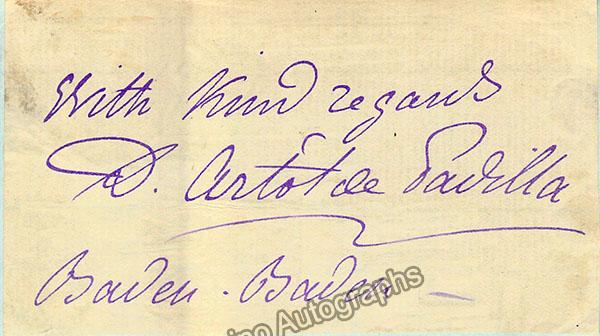 With Kind regards
D. Artôt de Padilla
Baden-Baden
Autographs